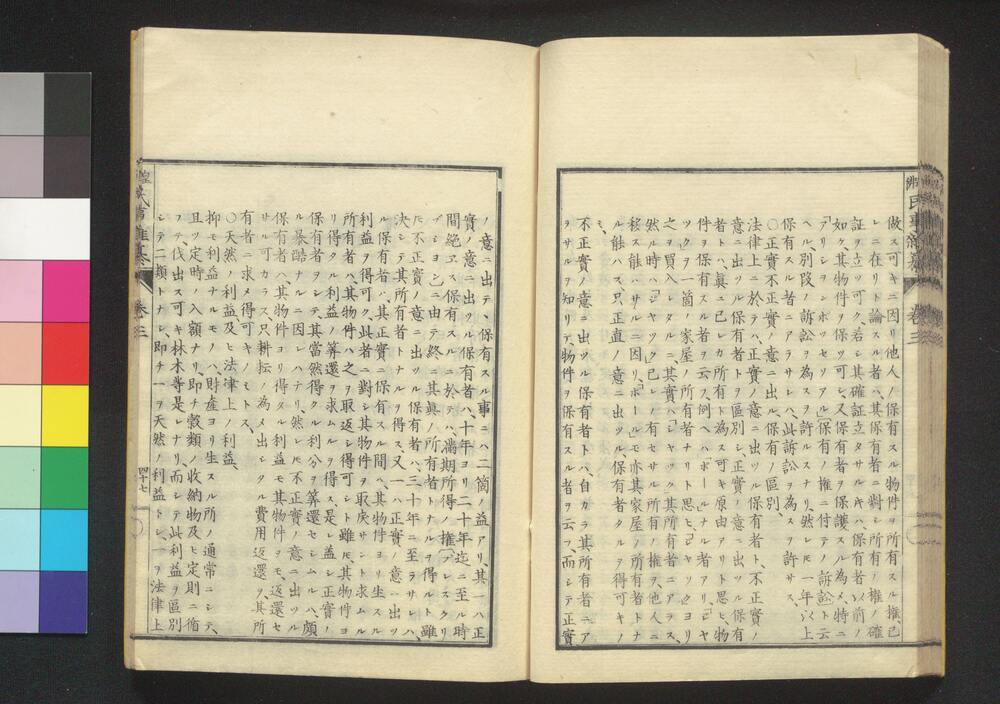 做ス可キニ因リ他人ノ保有スル物件ヲ所有スル權、己
レニ在リト論スル者ハ、其保有者ニ對シ所有ノ權ノ確
証ヲ立ツ可ク、若シ其確証立タサルキハ、保有者、以前ノ
如ク、其物件ヲ保ツ可シ、又保有者ヲ保護スル為メ、特ニ
「アクションポッセッソアル」保有ノ權ニ付テノ訴訟ト云
ヘル、別段ノ訴訟ヲ為スヲ許ルスナリ、然レ𪜈一年以上
保有スル者ニアラサレハ、此訴訟ヲ為スヲ許サス、
〇正實不正實ノ意ニ出ル保有ノ區別、
法律上ニ於テハ、正實ノ意ニ出ツル保有者ト、不正實ノ
意ニ出ツル保有者トヲ區別シ、正實ノ意ニ出ツル保有
者トハ、眞ニ己レカ所有ト為ス可キ原由アリト思ヒ、物
件ヲ保有スル者ヲ云ス、例ヘハ「ポール」ナル者アリ、「ジャ
ック」ヲ一箇ノ家屋ノ所有者ナリト思ヒ、「ジャック」ヨリ
之ヲ買入レタルニ、其實ハ「ジャック」其所有者ニアラス、
然ル時ハ、「ジャック」己レノ有セサル所有ノ權ヲ他人ニ
移ス能ハサルニ因リ、「ポール」モ亦其家屋ノ所有者トナ
ル能ハス、只正直ノ意ニ出ツル、保有者タルヲ得可キノ
ミ、
不正實ノ意ニ出ツル保有者トハ、自カラ其所有者ニア
ラサルヲ知リテ、物件ヲ保有スル者ヲ云フ、而シテ正實
ノ意ニ出テ、保有スル事ニハ二箇ノ益アリ、其一ハ正
實ノ意ニ出ツル保有者ハ、十年ヨリ二十年迄ニ至ル時
間絶エス保有スルニ於テハ、滿期所得ノ權「プレスクリ
プション」ニ由テ終ニ其眞ノ所有者トナルヲ得ルト雖
𪜈不正實ノ意ニ出ツル保有者ハ、三十年ニ至ラサレハ、
決シテ其所有者トナルヲ得ス、又一ハ正實ノ意ニ出ツ
ル保有者ハ、其正實ニ保有スル間ハ、其物件ヨリ生スル
利益ヲ得可ク、此者ニ對シ其物件ヲ取戾サント求ムル
所有者ハ、其物件ハ之ヲ取返シ得可シト雖𪜈、其物件ヨ
リ得タル利益ノ筭還ヲ求ムルヲ得ス、是レ蓋シ正實ノ
保有者ヲシテ、其當然得タル利分ヲ筭還セシムルハ、頗
ル暴酷ナルニヨレハナリ、然レ𪜈不正實ノ意ニ出ツル
保有者ハ、其物件ヨリ得タル利益モ其物件ヲモ、返還セ
サル可カラス、只耕耘ノ為メ出シタル費用返還ヲ、其所
有者ニ求メ得可キノミトス、
〇天然ノ利益及ヒ法律上ノ利益、
抑モ利益ナルモノハ、財產ヨリ生スル所ノ通常ニシテ、
且ツ定時ノ入額ナリ、即チ穀類ノ收納物及ヒ定則ニ循
フテ、伐出ス可キ林木等是レナリ、而シテ此利益ヲ區別
シテ二類トナシ、即チ一ヲ天然ノ利益トシ、一ヲ法律上
卷三
四十七
卷三